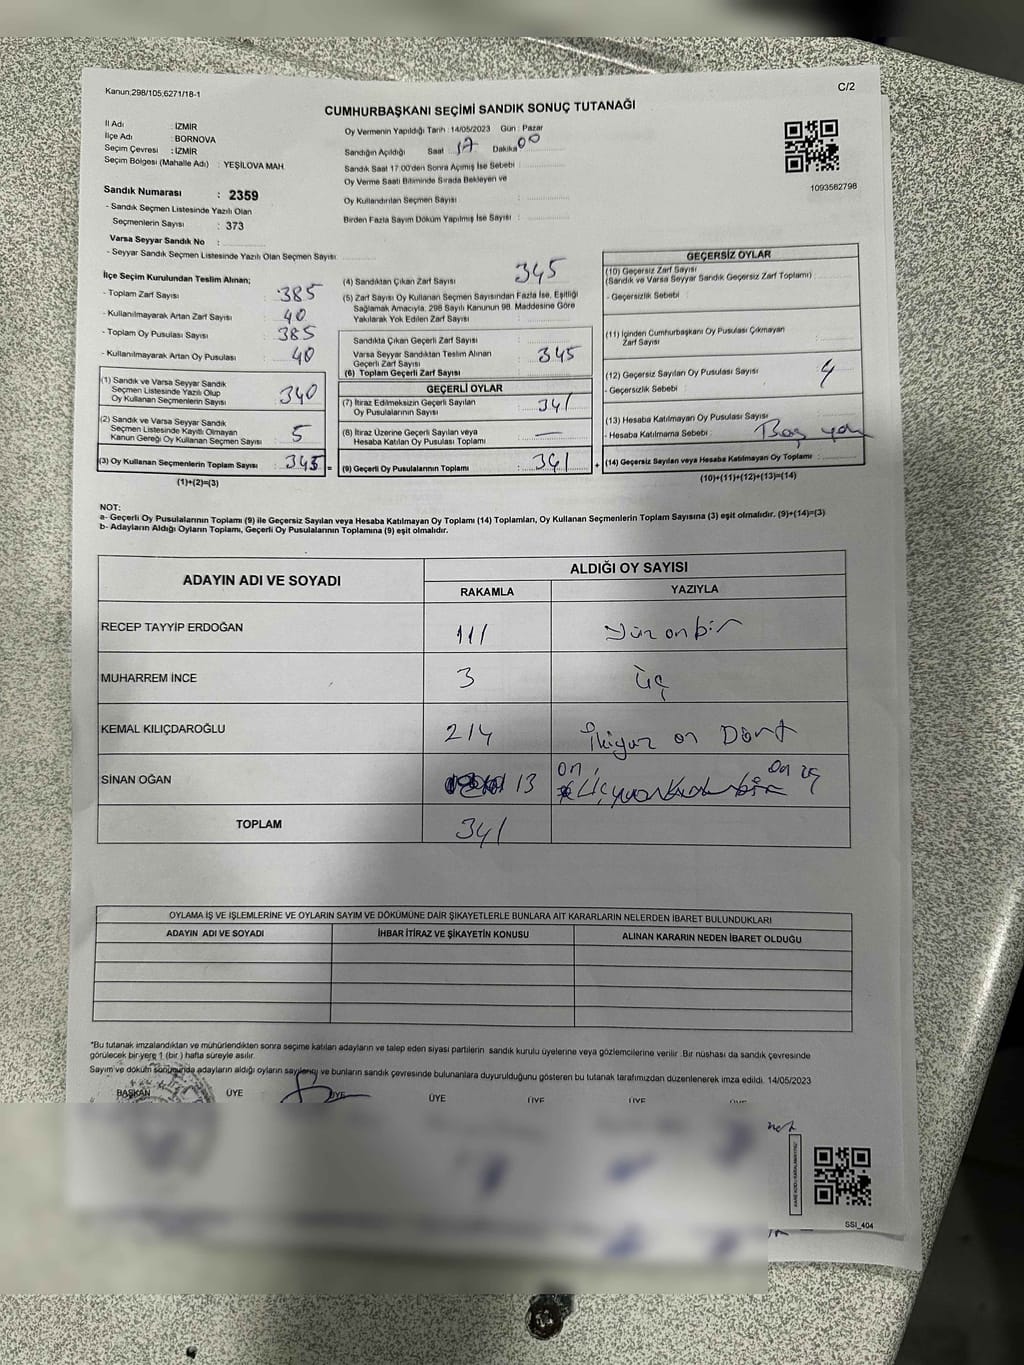 Kanun:298/105,6271/18-1
C/2
CUMHURBAŞKANI SEÇİMİ SANDIK SONUÇ TUTANAĞI
İl Adı : İZMİR
İlçe Adı : BORNOVA
Seçim Çevresi : İZMİR
Seçim Bölgesi (Mahalle Adı) : YEŞİLOVA MAH.
Sandık Numarası : 2359
- Sandık Seçmen Listesinde Yazılı Olan
Seçmenlerin Sayısı : 373
Varsa Seyyar Sandık No :
- Seyyar Sandık Seçmen Listesinde Yazılı Olan Seçmen Sayısı:
Oy Vermenin Yapıldığı Tarih : 14/05/2023 Gün : Pazar
Sandığın Açıldığı Saat 17 Dakika 00
Sandık Saat 17:00'den Sonra Açılmış İse Sebebi :
Oy Verme Saati Bitiminde Sırada Bekleyen ve
Oy Kullandırılan Seçmen Sayısı :
Birden Fazla Sayım Döküm Yapılmış İse Sayısı :
1093562798
İlçe Seçim Kurulundan Teslim Alınan;
- Toplam Zarf Sayısı : 385
- Kullanılmayarak Artan Zarf Sayısı : 40
- Toplam Oy Pusulası Sayısı : 385
- Kullanılmayarak Artan Oy Pusulası : 40
(1) Sandık ve Varsa Seyyar Sandık
Seçmen Listesinde Yazılı Olup
Oy Kullanan Seçmenlerin Sayısı : 340
(2) Sandık ve Varsa Seyyar Sandık
Seçmen Listesinde Kayıtlı Olmayan
Kanun Gereği Oy Kullanan Seçmen Sayısı : 5
(3) Oy Kullanan Seçmenlerin Toplam Sayısı : 345 =
(1)+(2)=(3)
(4) Sandıktan Çıkan Zarf Sayısı : 345
(5) Zarf Sayısı Oy Kullanan Seçmen Sayısından Fazla İse, Eşitliği
Sağlamak Amacıyla, 298 Sayılı Kanunun 98. Maddesine Göre
Yakılarak Yok Edilen Zarf Sayısı :
Sandıkta Çıkan Geçerli Zarf Sayısı :
Varsa Seyyar Sandıktan Teslim Alınan
Geçerli Zarf Sayısı
(6) Toplam Geçerli Zarf Sayısı : 345
GEÇERLİ OYLAR
(7) İtiraz Edilmeksizin Geçerli Sayılan
Oy Pusulalarının Sayısı : 341
(8) İtiraz Üzerine Geçerli Sayılan veya
Hesaba Katılan Oy Pusulası Toplamı : —
(9) Geçerli Oy Pusulalarının Toplamı : 341 +
GEÇERSİZ OYLAR
(10) Geçersiz Zarf Sayısı
(Sandık ve Varsa Seyyar Sandık Geçersiz Zarf Toplamı) :
- Geçersizlik Sebebi :
(11) İçinden Cumhurbaşkanı Oy Pusulası Çıkmayan
Zarf Sayısı :
(12) Geçersiz Sayılan Oy Pusulası Sayısı : 4
- Geçersizlik Sebebi :
(13) Hesaba Katılmayan Oy Pusulası Sayısı :
- Hesaba Katılmama Sebebi :
(14) Geçersiz Sayılan veya Hesaba Katılmayan Oy Toplamı :
(10)+(11)+(12)+(13)=(14)
NOT:
a- Geçerli Oy Pusulalarının Toplamı (9) ile Geçersiz Sayılan veya Hesaba Katılmayan Oy Toplamı (14) Toplamları, Oy Kullanan Seçmenlerin Toplam Sayısına (3) eşit olmalıdır. (9)+(14)=(3)
b- Adayların Aldığı Oyların Toplamı, Geçerli Oy Pusulalarının Toplamına (9) eşit olmalıdır.
ADAYIN ADI VE SOYADI ALDIĞI OY SAYISI
RAKAMLA YAZIYLA
RECEP TAYYİP ERDOĞAN 111 Yüz on bir
MUHARREM İNCE 3 üç
KEMAL KILIÇDAROĞLU 214 İkiyüz on Dört
SİNAN OĞAN 13 on üç
TOPLAM 341
OYLAMA İŞ VE İŞLEMLERİNE VE OYLARIN SAYIM VE DÖKÜMÜNE DAİR ŞİKAYETLERLE BUNLARA AİT KARARLARIN NELERDEN İBARET BULUNDUKLARI
ADAYIN ADI VE SOYADI İHBAR İTİRAZ VE ŞİKAYETİN KONUSU ALINAN KARARIN NEDEN İBARET OLDUĞU
*Bu tutanak imzalandıktan ve mühürlendikten sonra seçime katılan adayların ve talep eden siyasi partilerin sandık kurulu üyelerine veya gözlemcilerine verilir. Bir nüshası da sandık çevresinde
görülecek bir yere 1 (bir) hafta süreyle asılır.
Sayım ve döküm sonucunda adayların aldığı oyların sayılarını ve bunların sandık çevresinde bulunanlara duyurulduğunu gösteren bu tutanak tarafımızdan düzenlenerek imza edildi. 14/05/2023
BAŞKAN ÜYE ÜYE ÜYE ÜYE ÜYE ÜYE
SSI_404